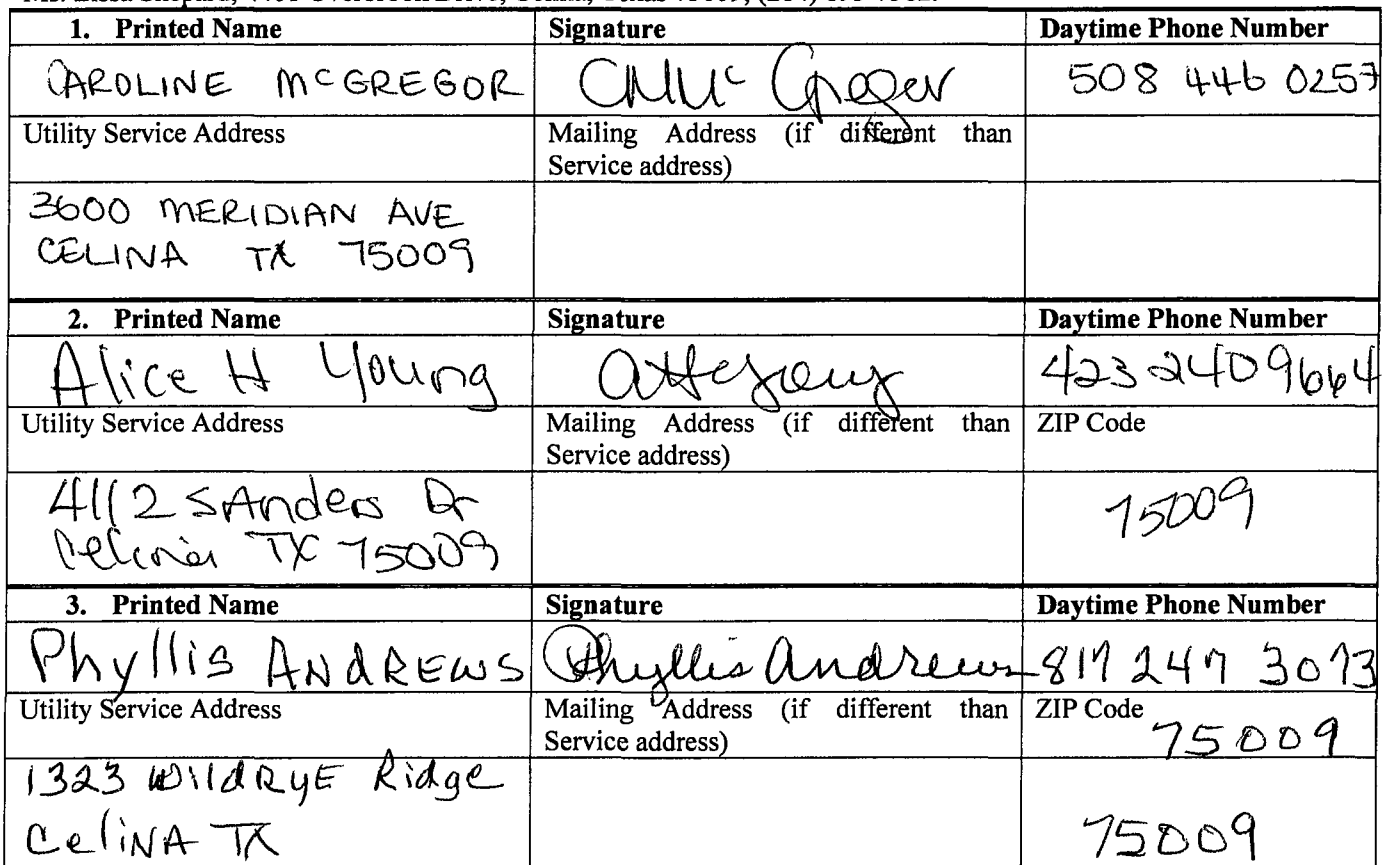 1. Printed Name Signature Daytime Phone Number
CAROLINE McGREGOR CMMc Gregor 508 446 0257
Utility Service Address Mailing Address (if different than
Service address)
3600 MERIDIAN AVE
CELINA TX 75009
2. Printed Name Signature Daytime Phone Number
Alice H Young 423 240 9664
Utility Service Address Mailing Address (if different than ZIP Code
Service address)
4112 SAnders Dr 75009
Celina TX 75009
3. Printed Name Signature Daytime Phone Number
Phyllis ANdREWS Phyllis Andrews 817 247 3073
Utility Service Address Mailing Address (if different than ZIP Code
Service address) 75009
1323 WildRyE Ridge
CeliNA TX 75009